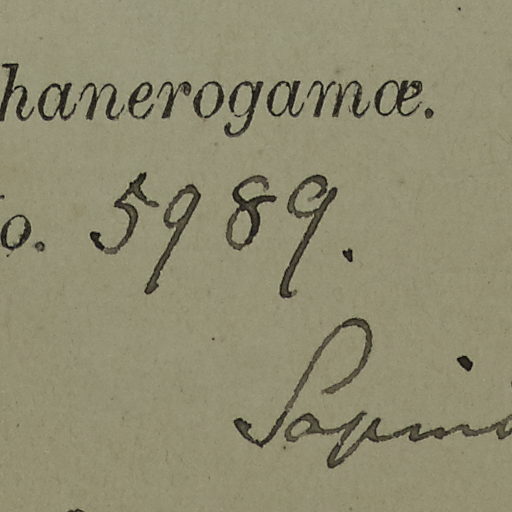 hanerogamæ.
o. 5989.
Sapin